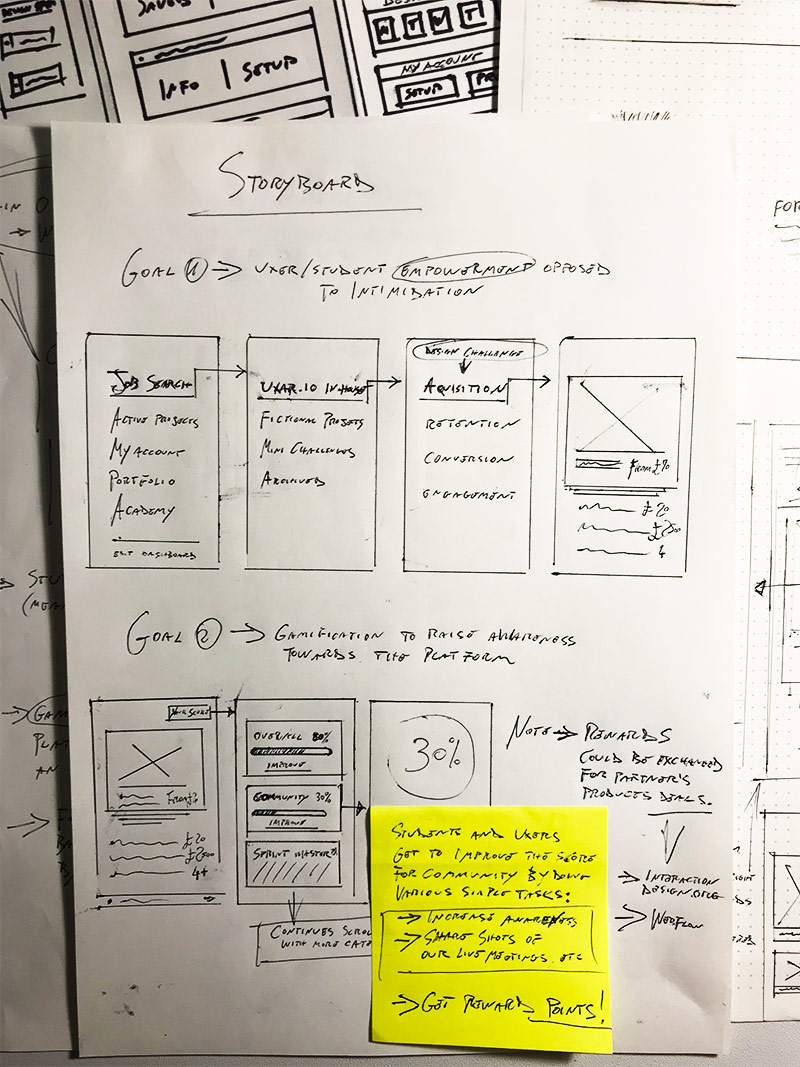 INFO | SETUP
MY ACCOUNT
SETUP
STORYBOARD
GOAL 1 → UXER/STUDENT EMPOWERMENT OPPOSED
TO INTIMIDATION
JOB SEARCH
ACTIVE PROJECTS
MY ACCOUNT
PORTFOLIO
ACADEMY
EXIT DASHBOARD
UXAR.IO IN-HOUSE
FICTIONAL PROJETS
MINI CHALLENGES
ARCHIVED
DESIGN CHALLENGE
AQUISITION
RETENTION
CONVERSION
ENGAGEMENT
£20
4
GOAL 2 → GAMIFICATION TO RAISE AWARENESS
TOWARDS THE PLATFORM
YOUR SCORE
£20
4+
OVERALL 80%
IMPROVE
COMMUNITY 30%
IMPROVE
SPRINT MASTER
CONTINUES SCROLL
WITH MORE CATE
30%
NOTE → REWARDS
COULD BE EXCHANGED
FOR PARTNER'S
PRODUCTS DEALS.
→ INTERACTION
DESIGN.ORG
→ WEBFLOW
STUDENTS AND UXERS
GET TO IMPROVE THE SCORE
FOR COMMUNITY BY DOING
VARIOUS SIMPLE TASKS:
→ INCREASE AWARENESS
→ SHARE SHOTS OF
OUR LIVE MEETINGS. ETC
→ GET REWARD POINTS!